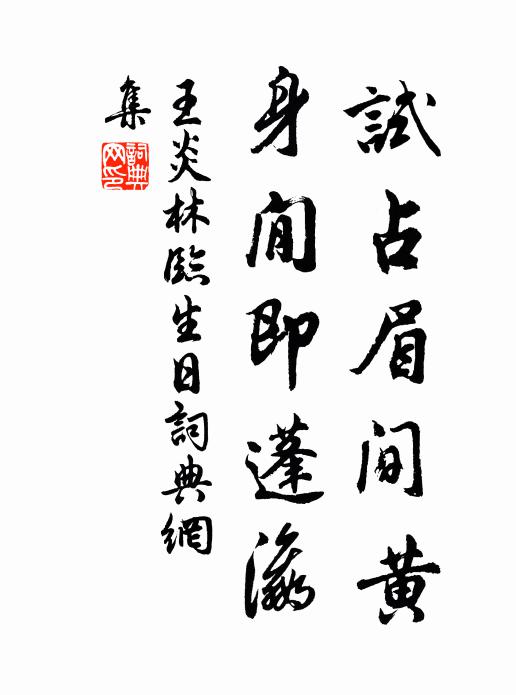 試占眉間黃
身閒即蓬瀛
王炎林臨生日詞典網
集
詞典
网印